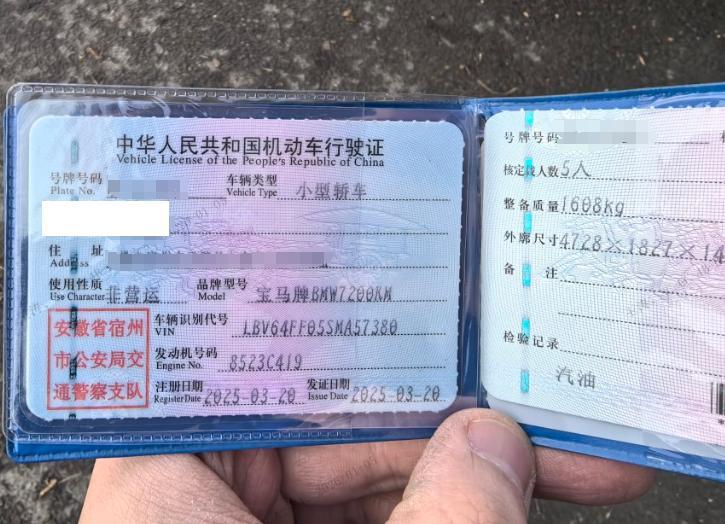 中华人民共和国机动车行驶证
Vehicle License of the People's Republic of China
号牌号码
Plate No.
车辆类型 小型轿车
Vehicle Type
住 址
Address
使用性质 非营运
Use Character
品牌型号 宝马牌BMW7200KM
Model
车辆识别代号 LBV64FF05SMA57380
VIN
发动机号码 8523C419
Engine No.
注册日期 2025-03-20
Register Date
发证日期 2025-03-20
Issue Date
安徽省宿州
市公安局交
通警察支队
号牌号码
核定载人数 5人
整备质量 1608kg
外廓尺寸 4728×1827×14
备 注
检验记录
汽油